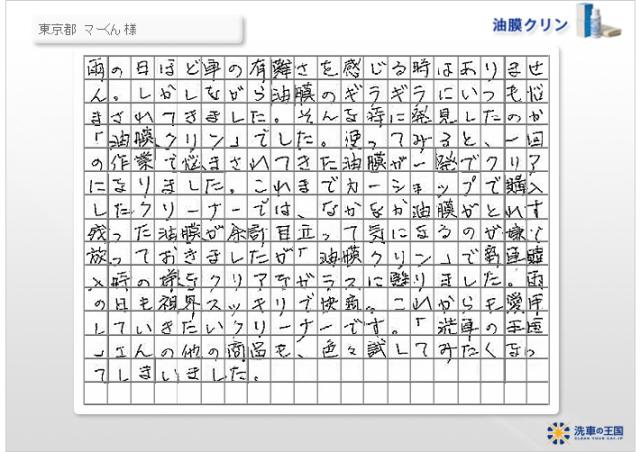 東京都 マーくん 様
油膜クリン
雨の日ほど車の有難さを感じる時はありませ
ん。しかしながら油膜のギラギラにいつも悩
まされてきました。そんな時に発見したのが
「油膜クリン」でした。使ってみると、一回
の作業で悩まされてきた油膜が一発でクリア
になりました。これまでカーショップで購入
したクリーナーでは、なかなか油膜がとれず
残った油膜が余計目立って気になるのが嫌で
放っておきましたが「油膜クリン」で新車購
入時の様なクリアなガラスに甦りました。雨
の日も視界スッキリで快適。これからも愛用
していきたいクリーナーです。「洗車の王国
」さんの他の商品も、色々試してみたくなっ
てしまいました。
洗車の王国
CLEAN YOUR CAR.JP